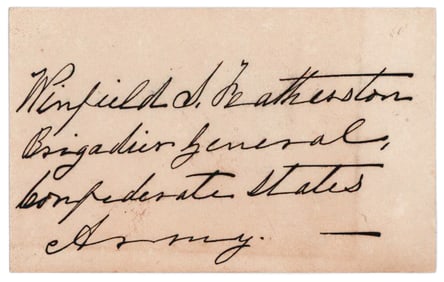 Winfield S. Featherston
Brigadier General,
Confederate States
Army. —